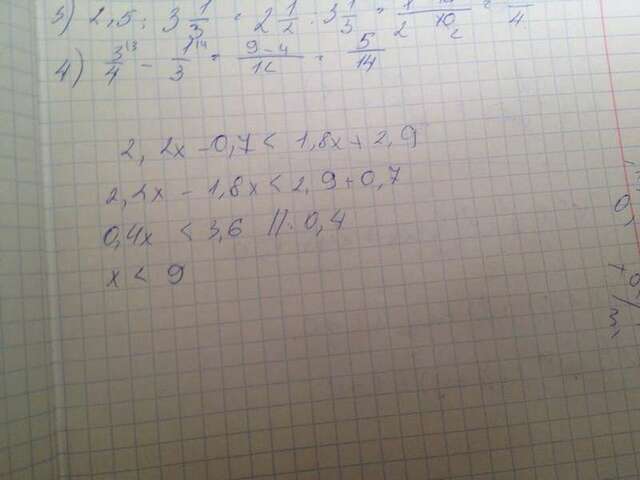 3) 2,5 : 3 1/3 = 2 1/2 : 3 1/3 =
4) 3/4 - 1/3 = 9-4/12 = 5/14
2,2x - 0,7 < 1,8x + 2,9
2,2x - 1,8x < 2,9 + 0,7
0,4x < 3,6 // : 0,4
x < 9